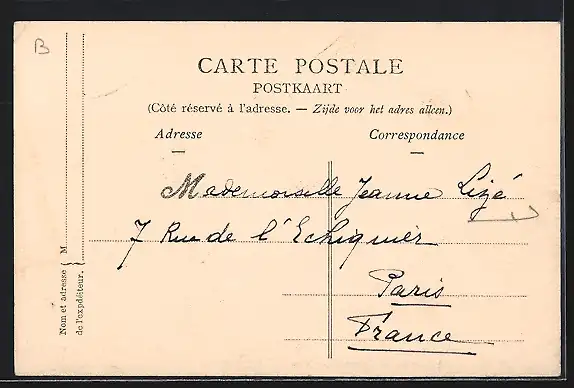 B
CARTE POSTALE
POSTKAART
(Côté réservé à l'adresse. — Zijde voor het adres alleen.)
Adresse
Correspondance
Mademoiselle Jeanne Lizé
7 Rue de l'Echiquier
Paris
France
Nom et adresse { M
de l'expéditeur. }